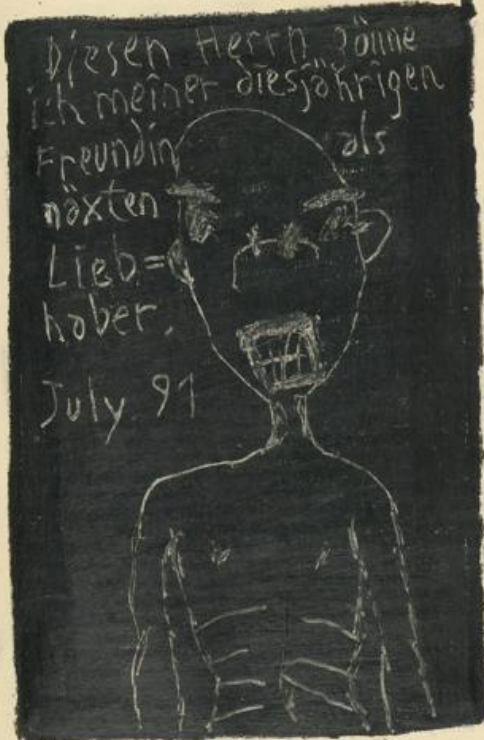 Diesen Herrn gönne
ich meiner diesjährigen
Freundin als
näxten
Lieb=
haber.
July 91